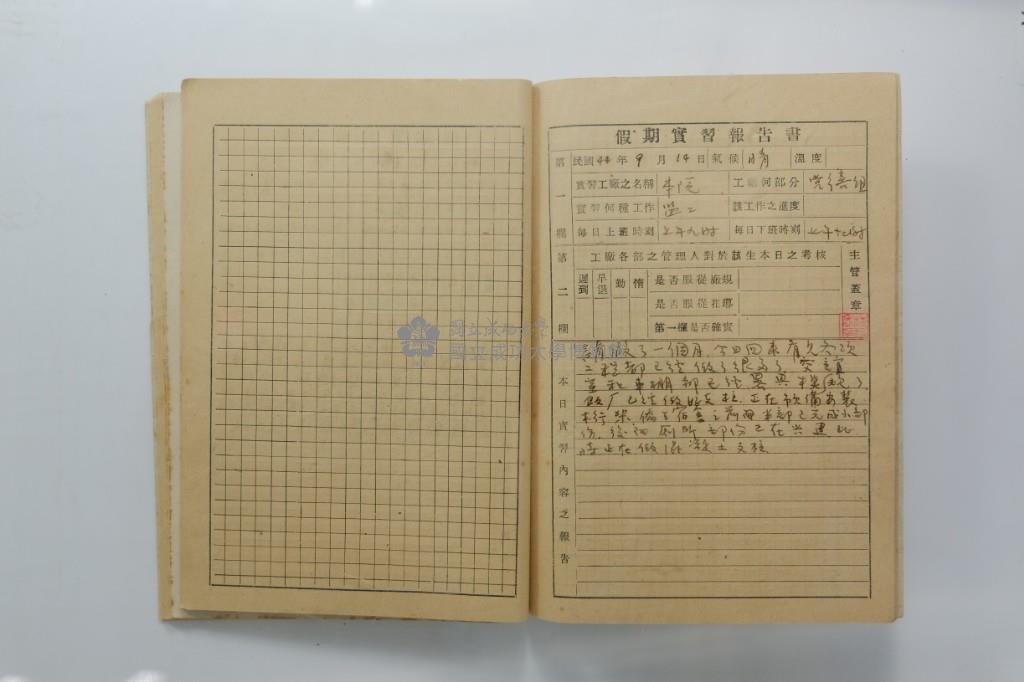 假期實習報告書
第一欄
民國44年9月14日氣候晴 溫度
實習工廠之名稱 本院 工廠何部分
實習何種工作 監工 該工作之進度
每日上班時刻 上午九時 每日下班時刻 上午十二時
第二欄
工廠各部之管理人對於該生本日之考核
主管蓋章
遲到 早退 勤 惰
是否服從廠規
是否服從指導
第一欄是否確實
國立成功大學
國立成功大學博物館
本日實習內容之報告
做了一個月,今日回來看見各項
工程都已經做了很多了
和車棚都已經具模範了
已經做好支柱,正在預備安裝
之前面 部已完成小部
份,後面廁所部份已在興建 此
時正在做混凝土支柱